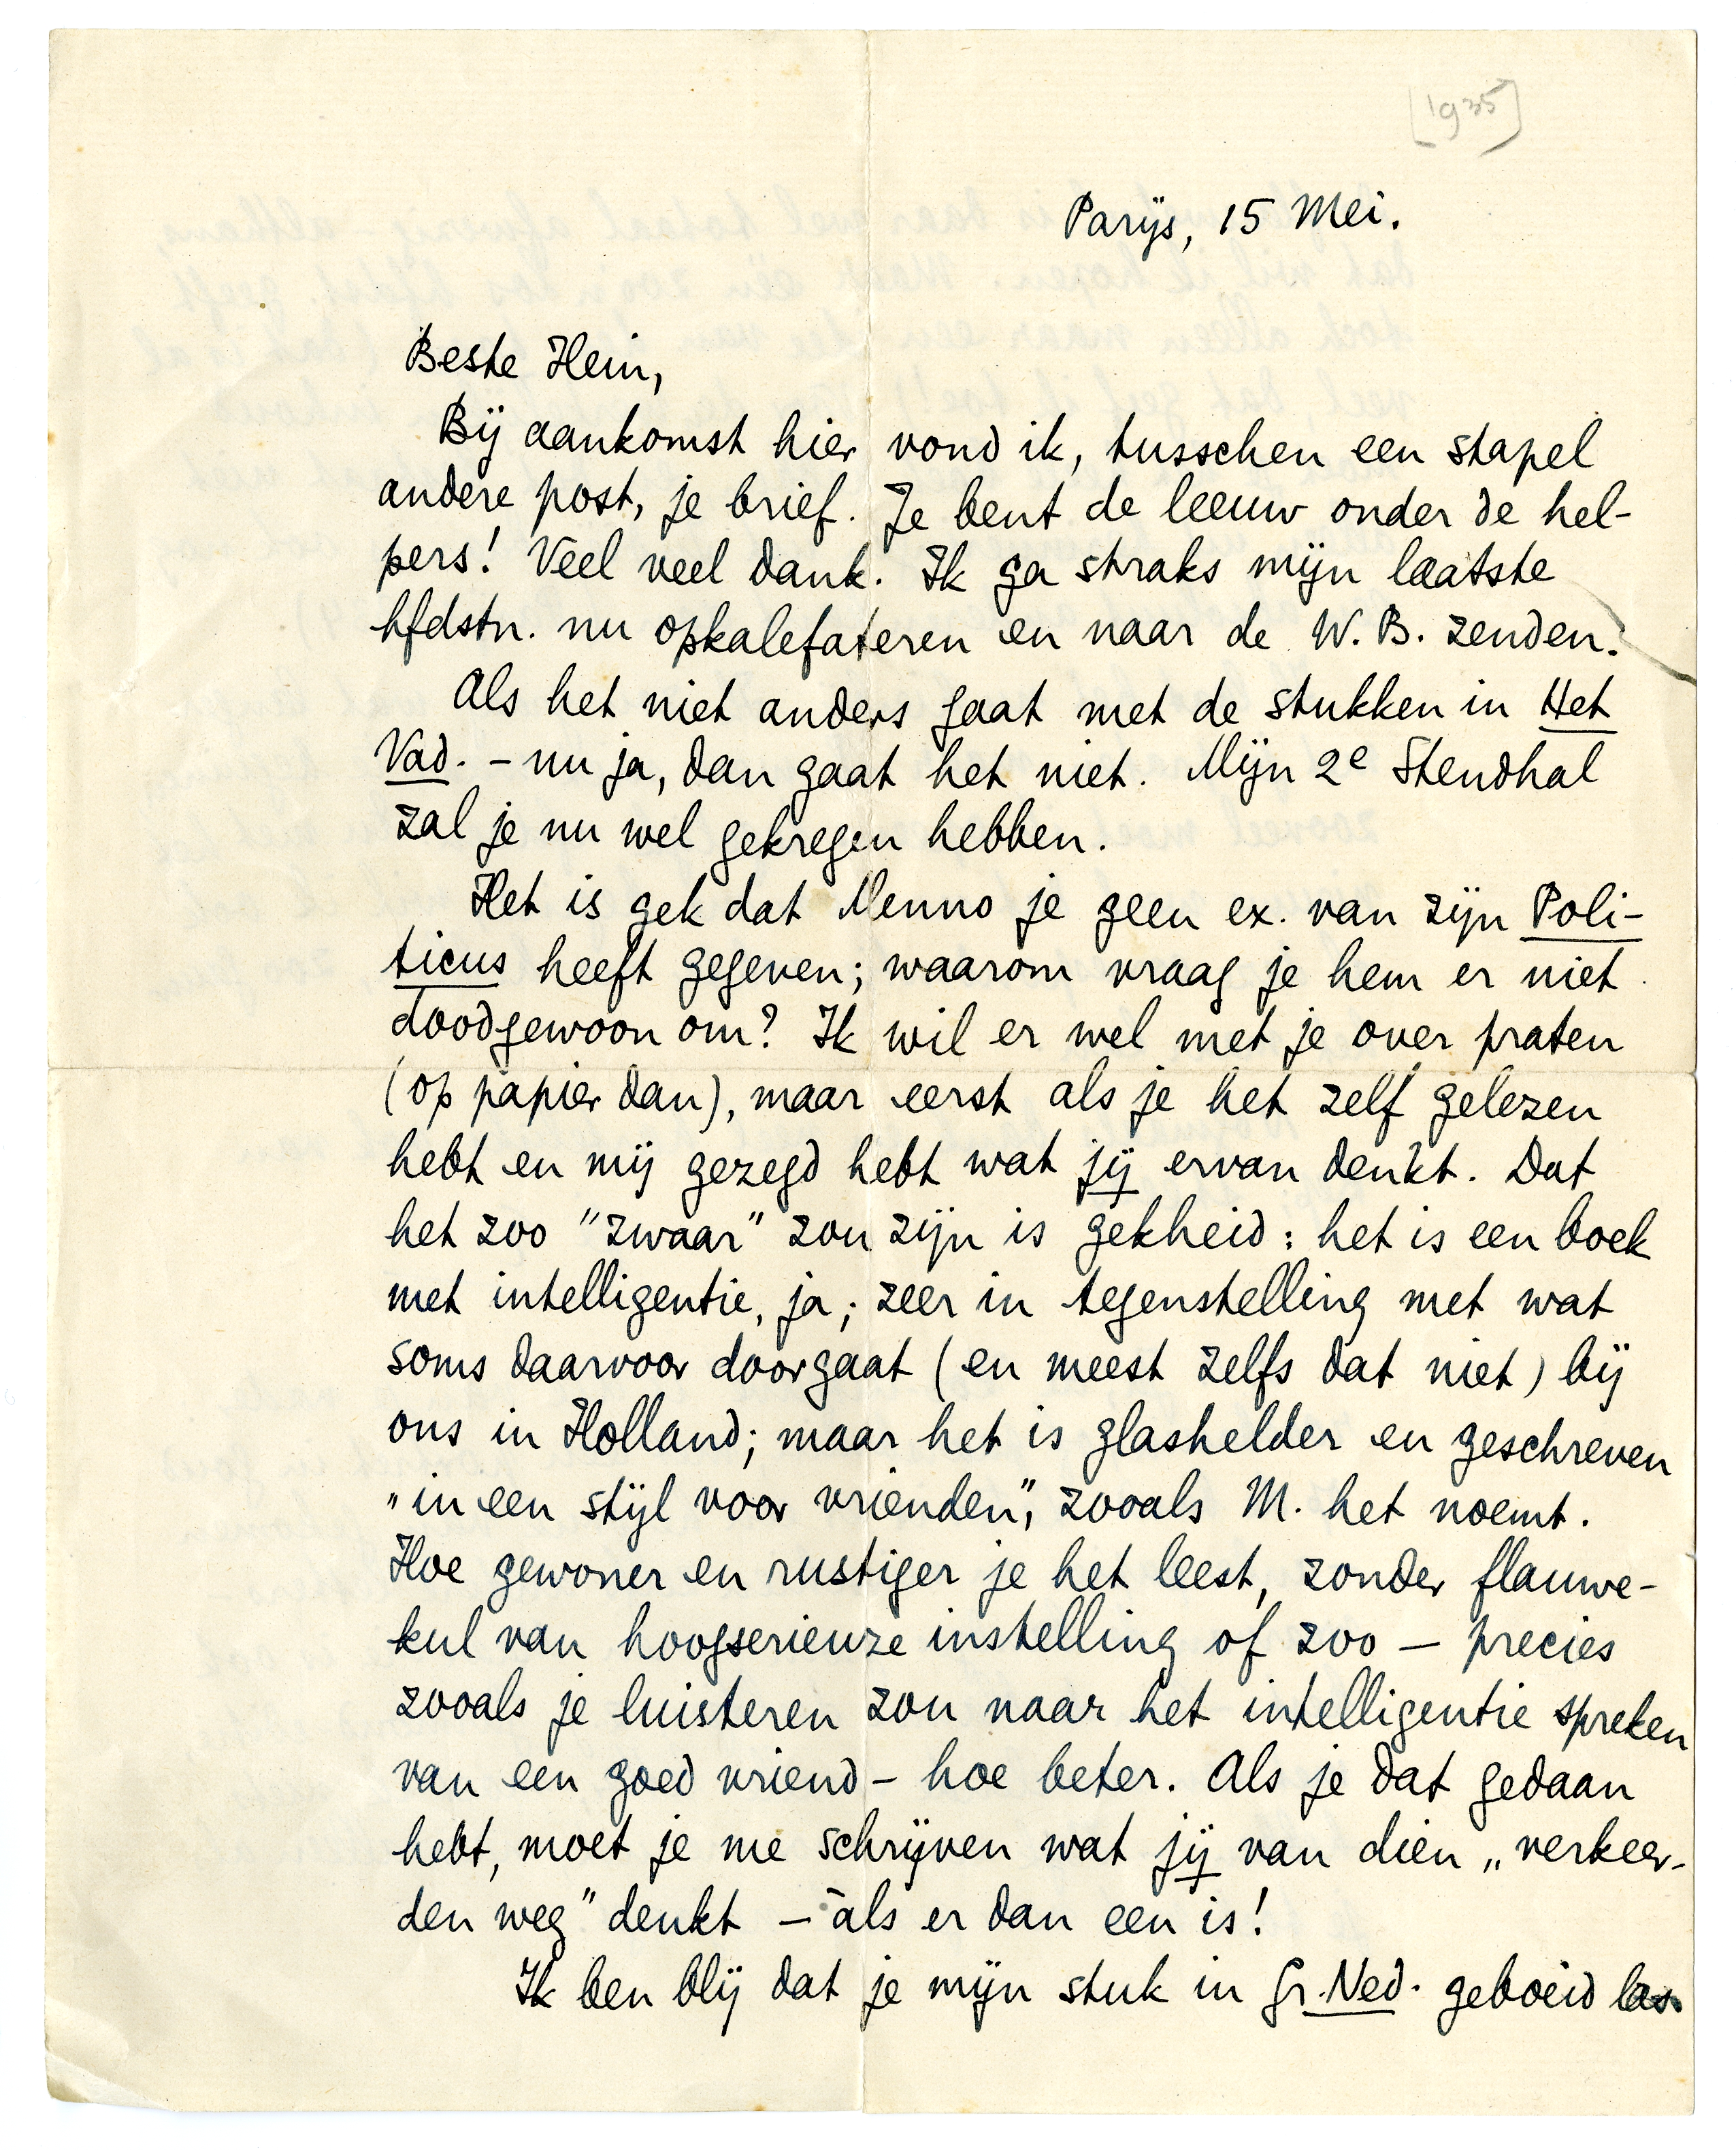 [1935]
Parijs, 15 Mei.
Beste Hein,
Bij aankomst hier vond ik, tusschen een stapel
andere post, je brief. Je bent de leeuw onder de hel-
pers! Veel veel dank. Ik ga straks mijn laatste
hfdstn. nu opkalefateren en naar de W.B. zenden.
Als het niet anders gaat met de stukken in Het
Vad. - nu ja, dan gaat het niet. Mijn 2e Stendhal
zal je nu wel gekregen hebben.
Het is gek dat Menno je geen ex. van zijn Poli-
ticus heeft gegeven; waarom vraag je hem er niet
doodgewoon om? Ik wil er wel met je over praten
(op papier dan), maar eerst als je het zelf gelezen
hebt en mij gezegd hebt wat jij ervan denkt. Dat
het zoo "zwaar" zou zijn is gekheid: het is een boek
met intelligentie, ja; zeer in tegenstelling met wat
soms daarvoor doorgaat (en meest zelfs dat niet) bij
ons in Holland; maar het is glashelder en geschreven
"in een stijl voor vrienden", zooals M. het noemt.
Hoe gewoner en rustiger je het leest, zonder flauwe-
kul van hoogserieuze instelling of zoo — precies
zooals je luisteren zou naar het intelligentie spreken
van een goed vriend - hoe beter. Als je dat gedaan
hebt, moet je me schrijven wat jij van dien „verkeer-
den weg" denkt - àls er dan een is!
Ik ben blij dat je mijn stuk in Gr. Ned. geboeid las.